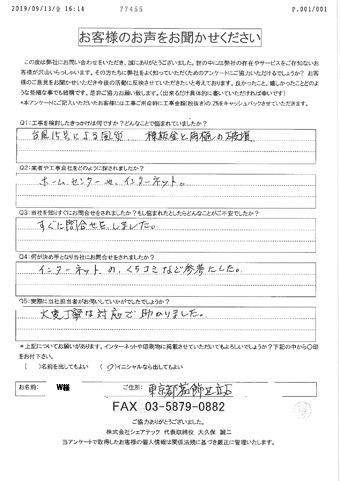 2019/09/13/金 16:16
77455
P.001/001
お客様のお声をお聞かせください
この度は弊社にお問い合わせをいただき、誠にありがとうございました。世の中には弊社の存在やサービスをご存知ないお
客様が沢山いらっしゃいます。その方たちに弊社をよく知っていただくためのアンケートにご協力いただけるでしょうか？お客
様のご意見をお聞かせいただき今後の活動に反映させていただきたいと考えております。良かったこと、嬉しかったことどのよ
うな些細な事でも結構です。是非ご協力お願い致します。（出来るだけ具体的に書いていただければ幸いです）
*本アンケートにご記入いただいたお客様には工事ご用命時に工事金額(税抜き)の2%をキャッシュバックさせていただきます。
Q1：工事を検討したきっかけは何ですか？どんなことで悩まれていましたか？
台風15号による風災 棟板金と雨樋の破損
Q2：業者や工事会社をどのように探されましたか？
ホームセンターや、インターネット。
Q3：当社を知りすぐにお問合せをされましたか？もし悩まれたとしたらどんなことがご不安でしたか？
すぐに問合せをしました。
Q4：何が決め手となり当社にお問合せをされましたか？
インターネットの、くちコミなど参考にした。
Q5：実際に当社担当者がお伺いしていかがでしたでしょうか？
大変丁寧な対応で助かりました。
*上記についてお願いがあります。インターネットや印刷物に掲載させていただいてもよろしいでしょうか？下記の中から〇印
をお付下さい。
( )名前を出してもよい (〇)イニシャルなら出してもよい
お名前： W様 ご住所： 東京都葛飾区立石
FAX 03-5879-0882
ご協力ありがとうございました。
株式会社シェアテック 代表取締役 大久保 誠二
当アンケートで取得したお客様の個人情報は関係法規に基づき厳正に管理いたします。